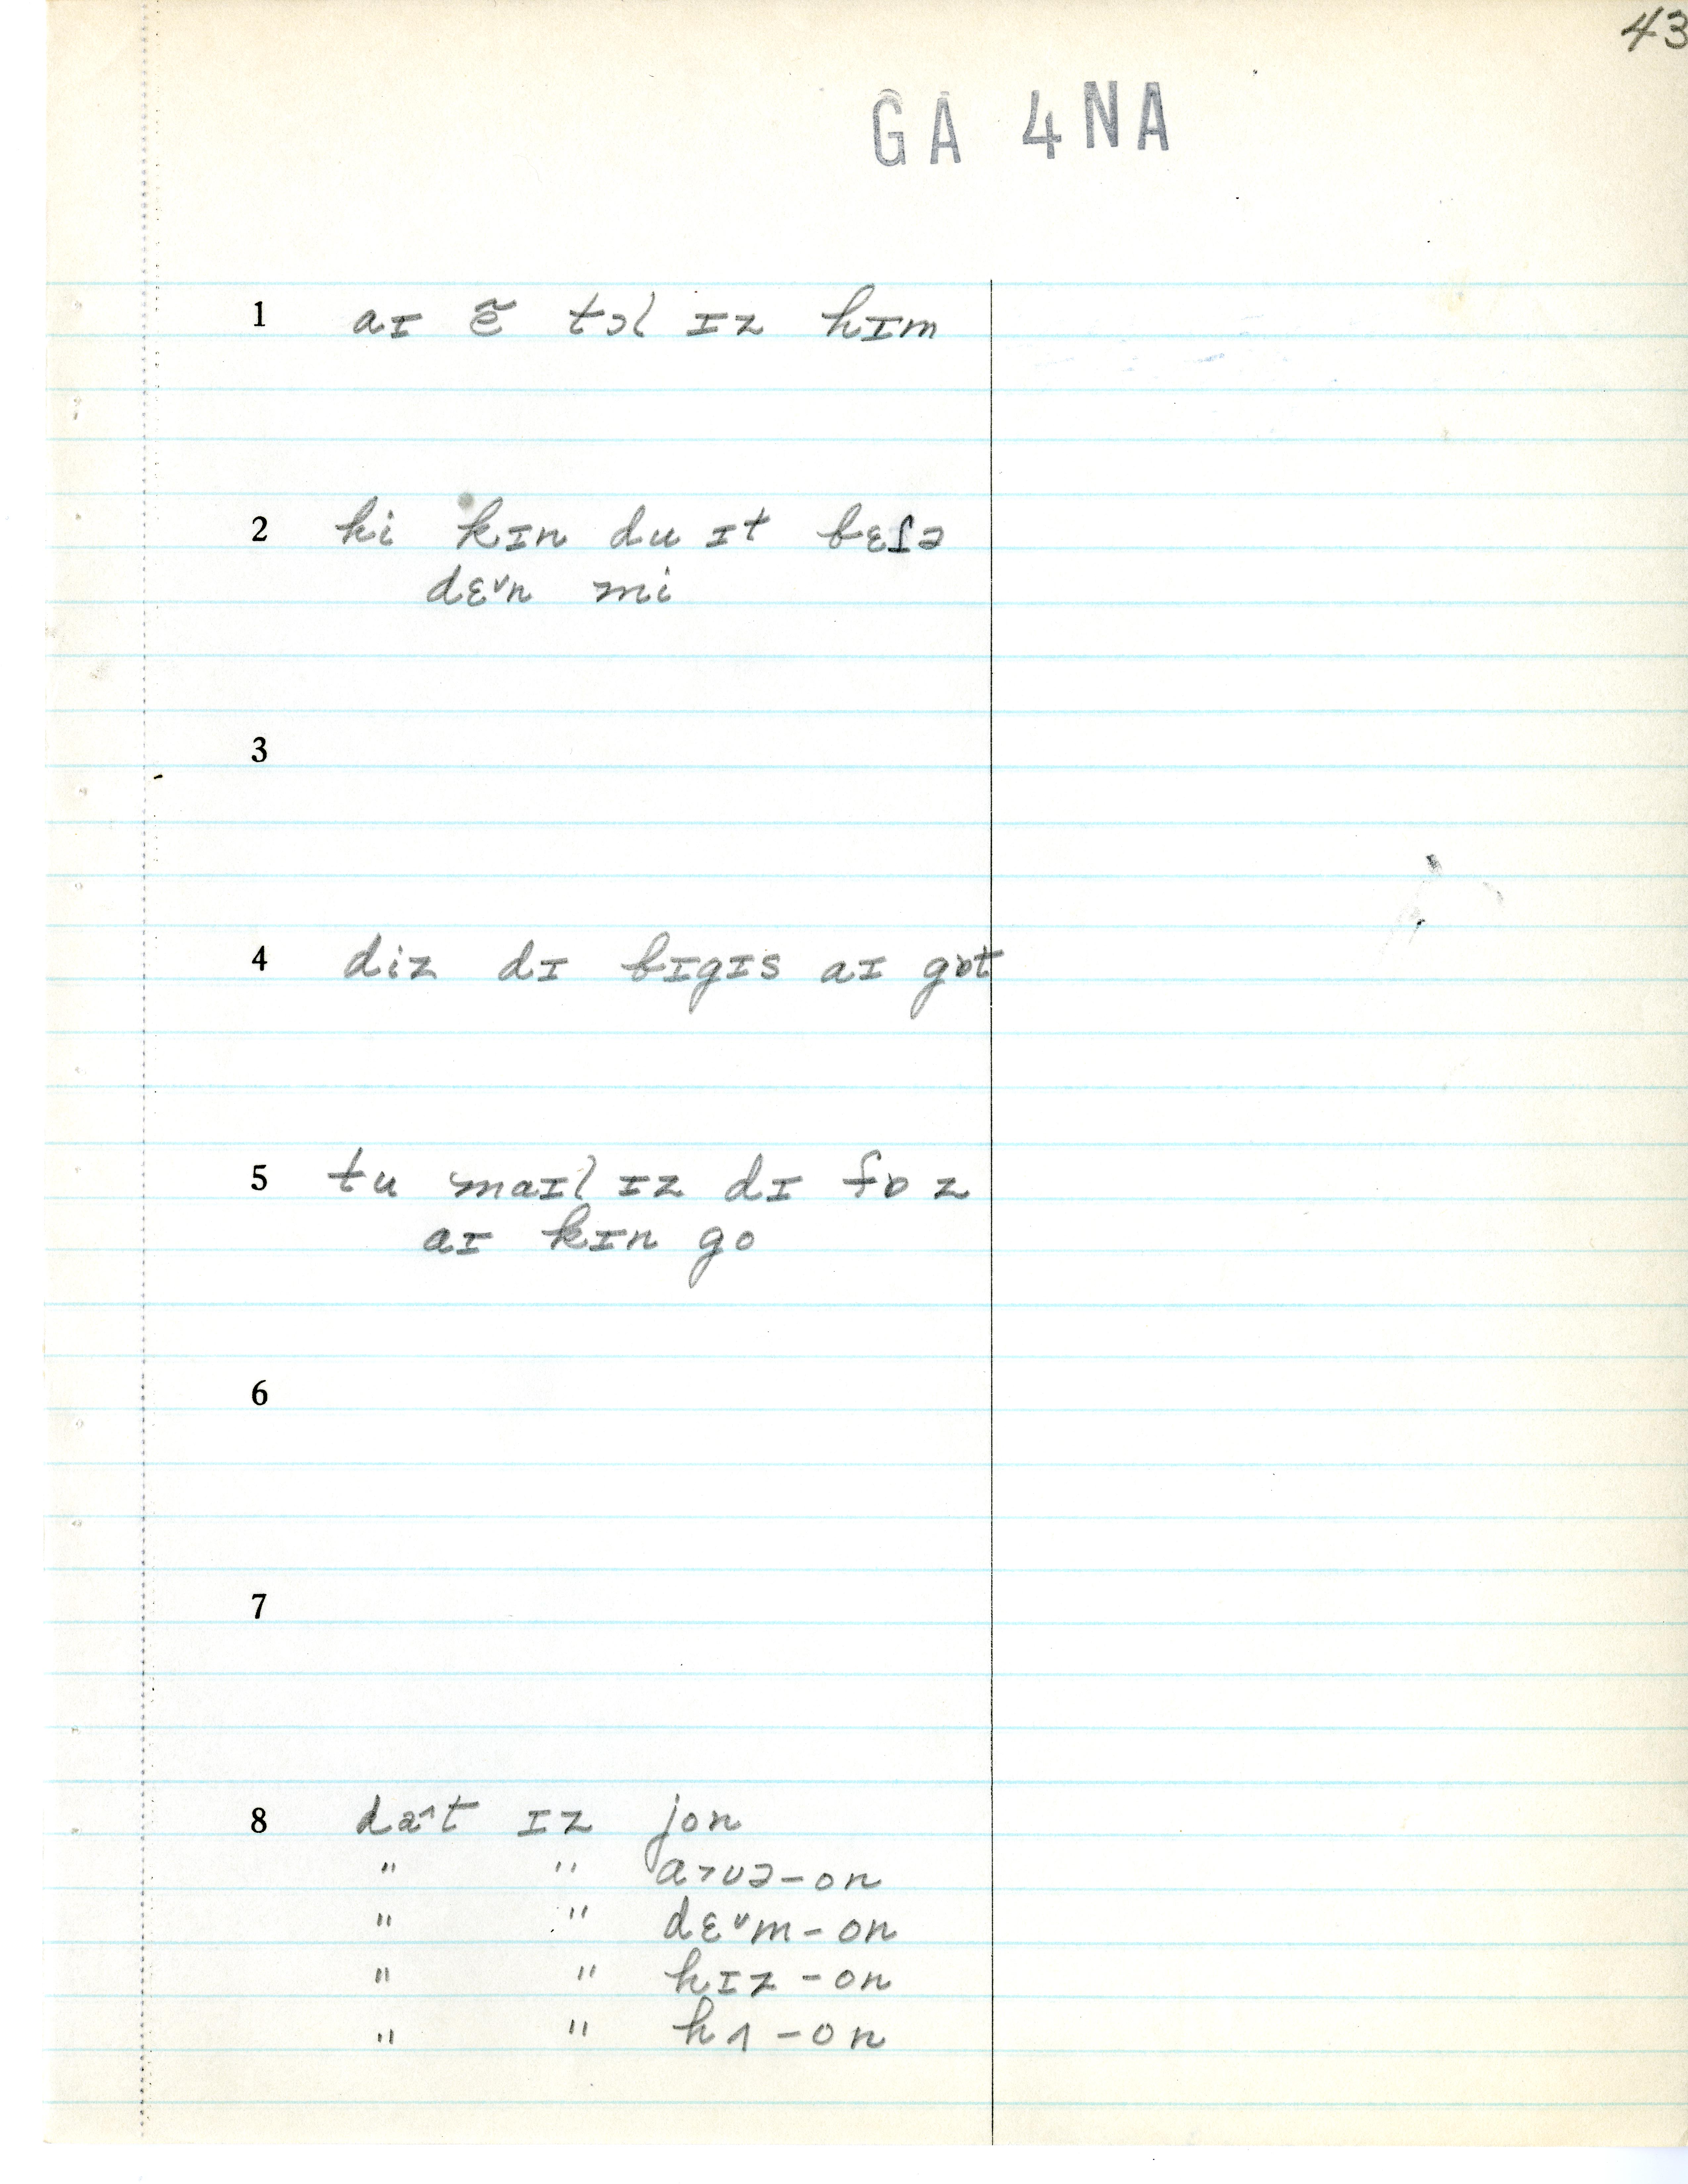 43
GA 4NA
1 aɪ ẽ tɔl ɪz hɪm
2 hi kɪn du ɪt bɛſə
dɛ˅n mi
3
4 diz dɪ bɪgɪs aɪ gɒt
5 tu maɪl ɪz dɪ fɒ z
aɪ kɪn go
6
7
8 da^t ɪz jon
" " aɔʊə-on
" " dɛ˅m-on
" " hɪz-on
" " hɜ-on